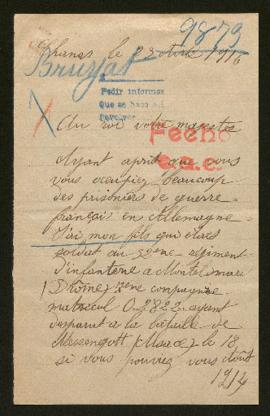 9879
le 23 1916
Bruyas
Pedir informes
Que se haga
X
Au roi votre majesté
Fecho
Ayant apris que vous
vous occupiez beaucoup
des prisoniers de guerre
français en Allemagne
mon fils qui étais
soldat du 52eme régiment
d'infanterie a Montelimar
Drôme 7ème compagnie
matricul 0.2822 ayant
disparut a la bataille de
le 18
si vous pouvez vous août
1914